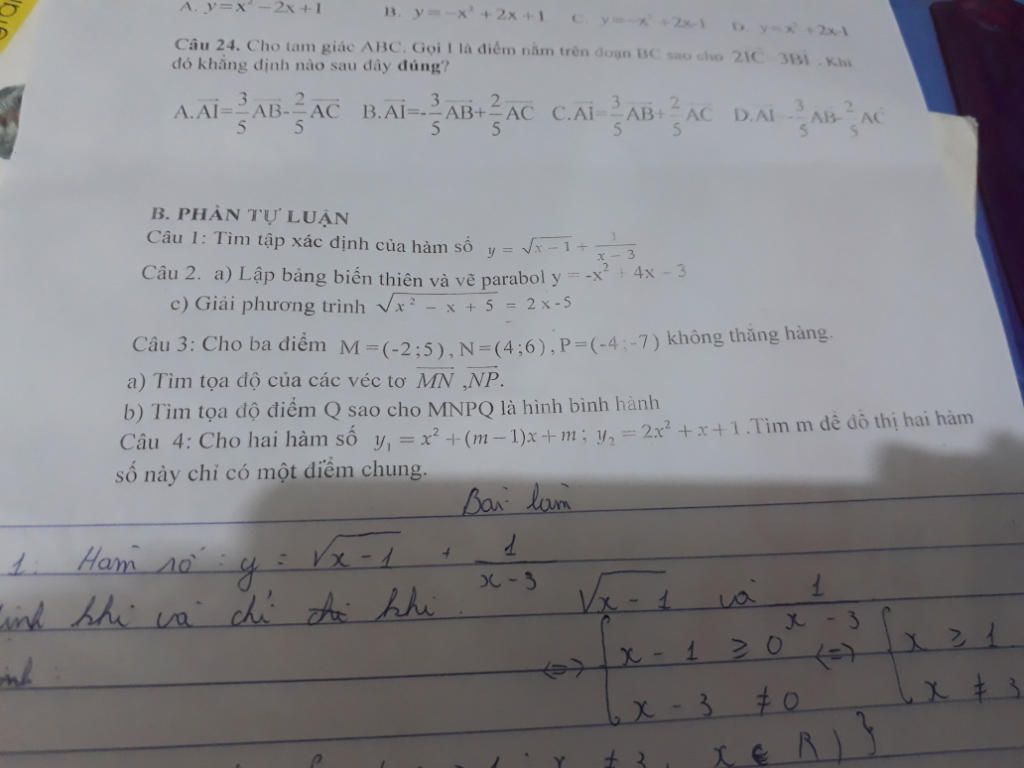 A. y=x² −2x+1 B. y=−x² +2x+1 C. y=−x² +2x-1 D. y=x² +2x-1
Câu 24. Cho tam giác ABC. Gọi I là điểm nằm trên đoạn BC sao cho 2IC 3BI . Khi
đó khẳng định nào sau đây đúng?
A. AI=3/5 AB-2/5 AC B. AI=-3/5 AB+2/5 AC C. AI=3/5 AB+2/5 AC D. AI -3/5 AB-2/5 AC
B. PHẦN TỰ LUẬN
Câu 1: Tìm tập xác định của hàm số y = √(x−1) + 1/(x−3)
Câu 2. a) Lập bảng biến thiên và vẽ parabol y = -x² + 4x − 3
c) Giải phương trình √(x² − x + 5) = 2x-5
Câu 3: Cho ba điểm M=(-2;5), N=(4;6), P=(-4;-7) không thẳng hàng.
a) Tìm tọa độ của các véc tơ MN ,NP.
b) Tìm tọa độ điểm Q sao cho MNPQ là hình bình hành
Câu 4: Cho hai hàm số y₁ = x² +(m−1)x+m ; y₂ = 2x² +x+1 .Tìm m để đồ thị hai hàm
số này chỉ có một điểm chung.
Bài làm
1: Hàm số : y = √(x-1) + 1/(x-3)
khi và chỉ khi √(x-1) và 1/(x-3)
⇔ { x - 1 ≥ 0 ⇔ { x ≥ 1
x - 3 ≠ 0 x ≠ 3
x ≠ 3, x ∈ R}